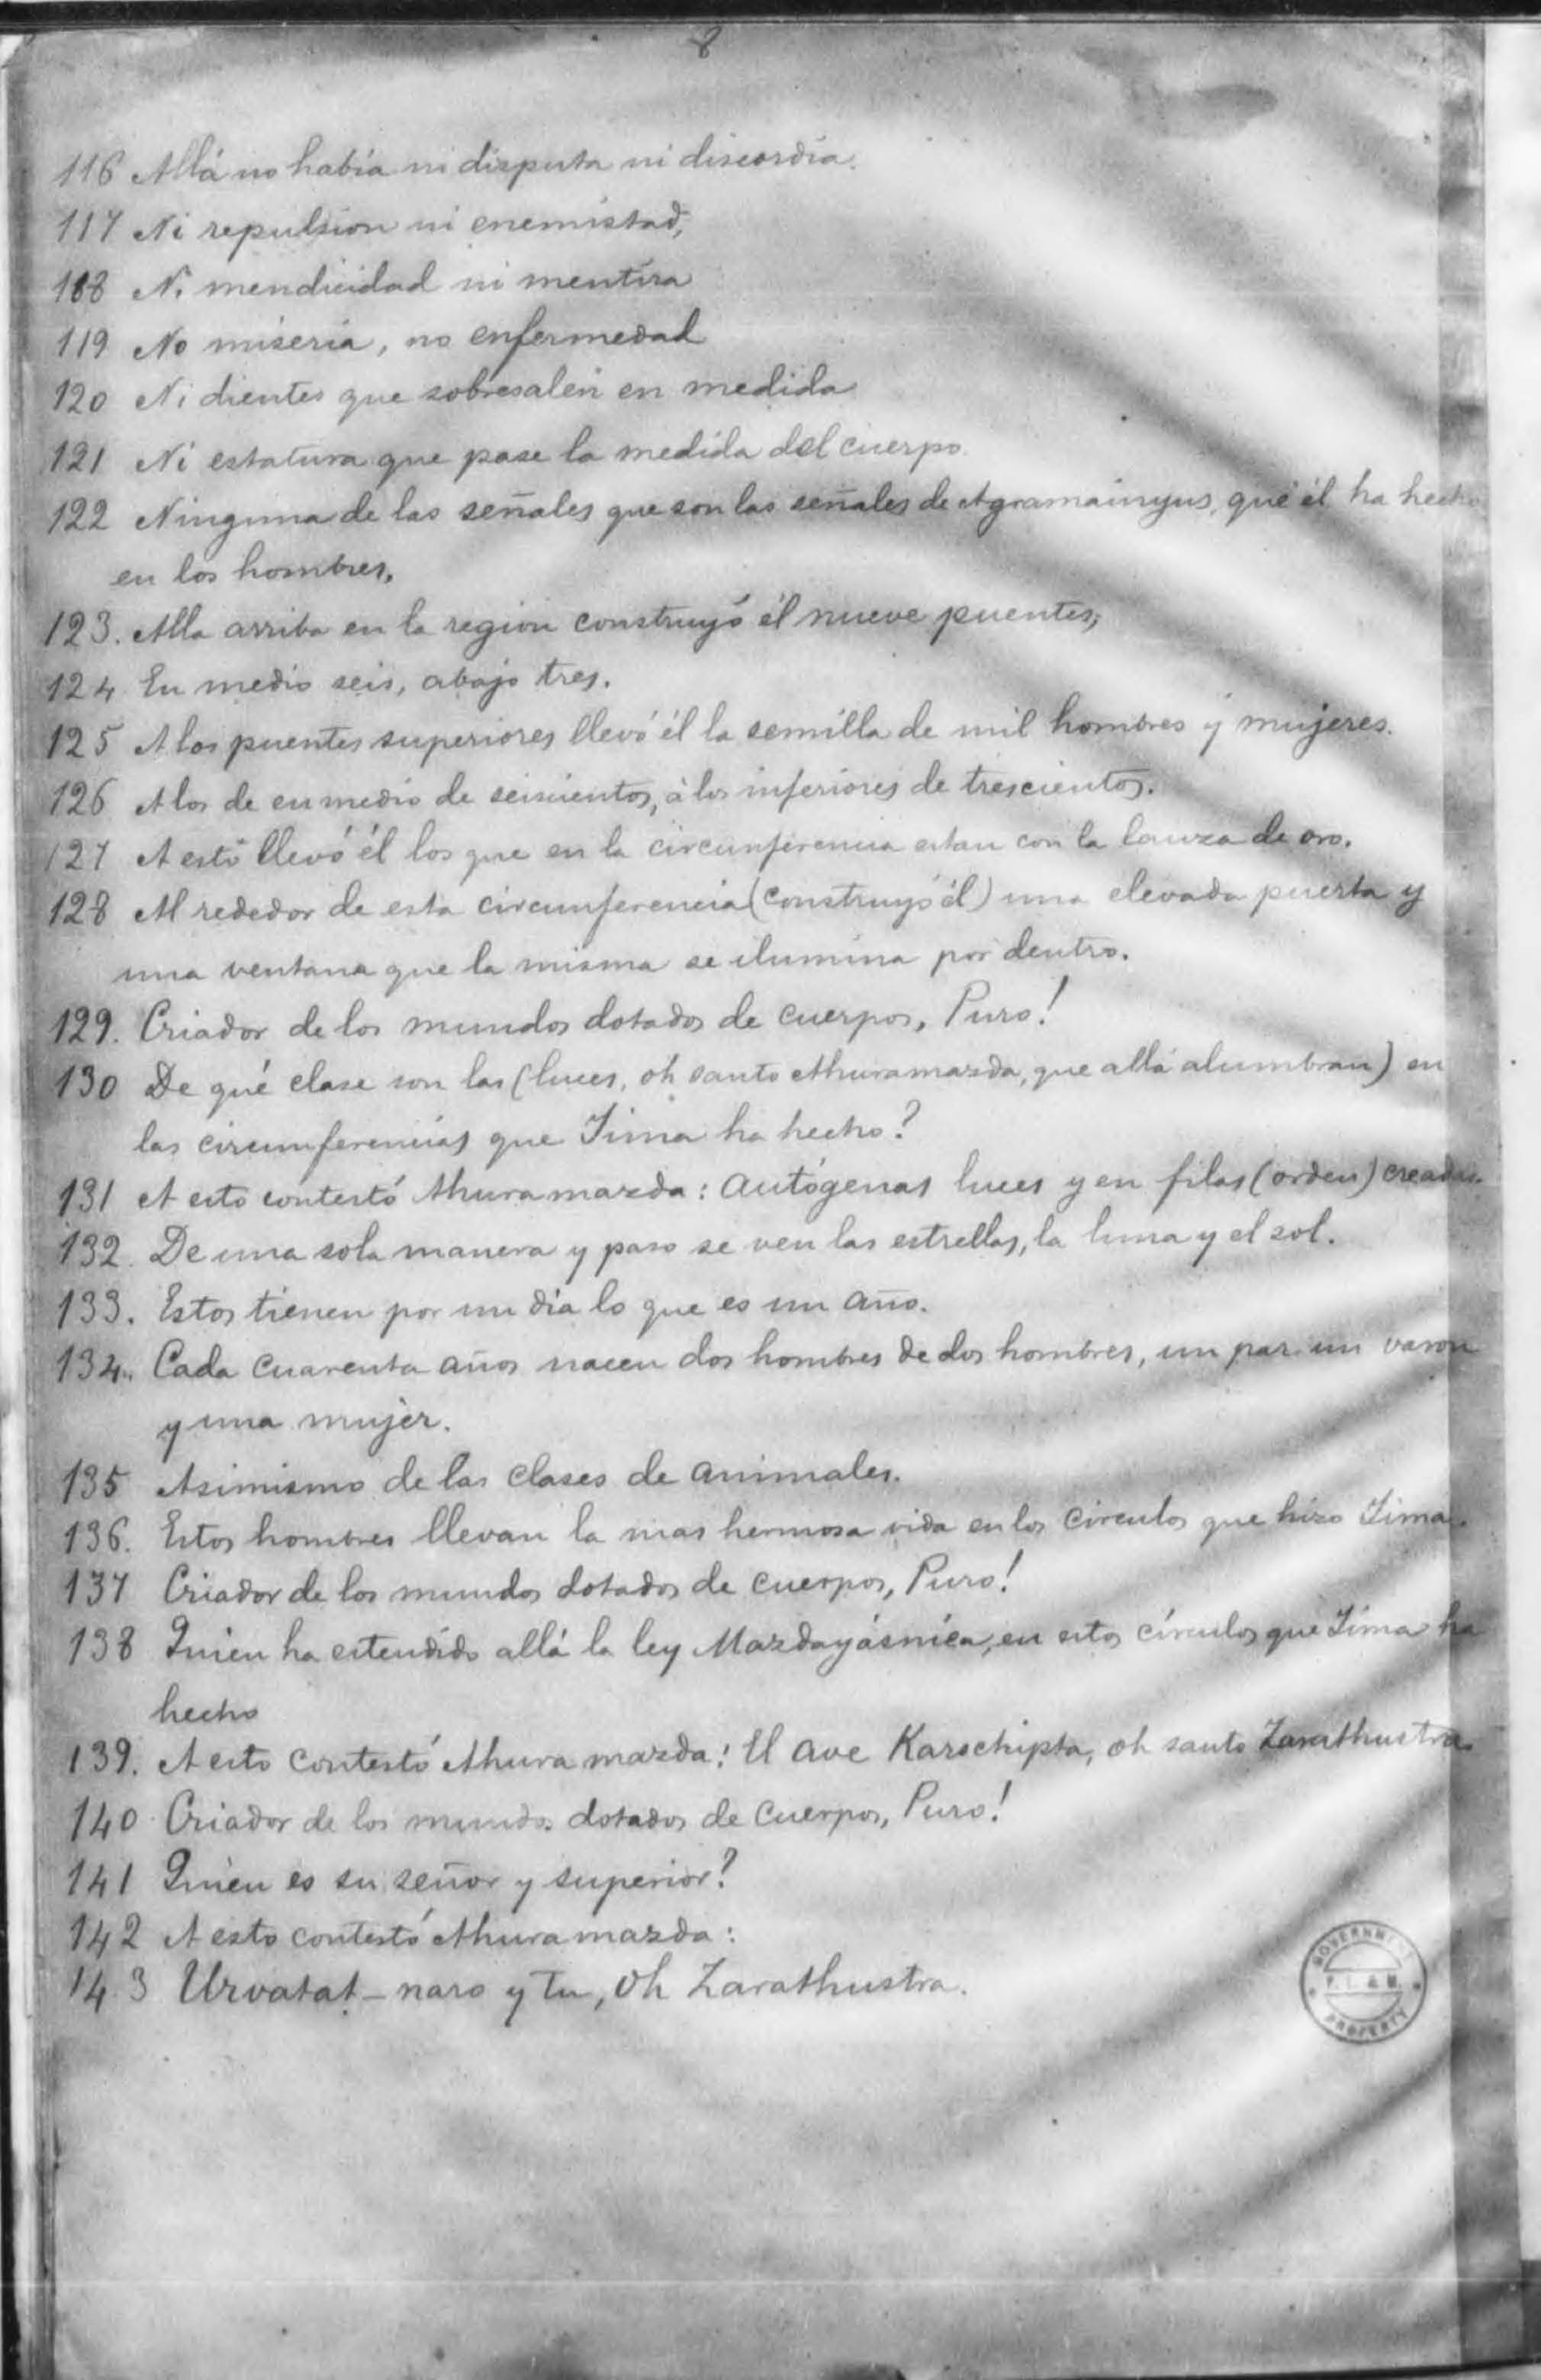 8
116 Allá no había ni disputa ni discordia.
117 Ni repulsion ni enemistad,
118 Ni mendicidad ni mentira
119 No miseria, no enfermedad
120 Ni dientes que sobresalen en medida
121 Ni estatura que pase la medida del cuerpo.
122 Ninguna de las señales que son las señales de Agramainyus, que él ha hecho
en los hombres.
123. Alla arriba en la region construyó él nueve puentes;
124 En medio seis, abajo tres.
125 A los puentes superiores llevó él la semilla de mil hombres y mujeres.
126 A los de en medio de seiscientos, à los inferiores de trescientos.
127 A esto llevó él los que en la circunferencia estan con la lanza de oro.
128 Al rededor de esta circunferencia (construyó él) una elevada puerta y
una ventana que la misma se ilumina por dentro.
129. Criador de los mundos dotados de cuerpos, Puro!
130 De qué clase son las (luces, oh santo Ahuramazda, que allá alumbran) en
las circumferencias que Jima ha hecho?
131 A esto contestó Ahuramazda: Autógenas luces y en filas (orden) creadas.
132. De una sola manera y paso se ven las estrellas, la luna y el sol.
133. Estos tienen por un dia lo que es un año.
134. Cada cuarenta años nacen dos hombres de dos hombres, un par un varon
y una mujer.
135 Asimismo de las clases de animales.
136. Estos hombres llevan la mas hermosa vida en los circulos que hizo Jima.
137 Criador de los mundos dotados de cuerpos, Puro!
138 Quien ha estendido allá la ley Mazdayásnica, en estos círculos que Jima ha
hecho
139. A esto contestó Ahura mazda: El ave Karschipta, oh santo Zarathustra.
140 Criador de los mundos dotados de cuerpos, Puro!
141 Quien es su señor y superior?
142 A esto contestó Ahuramazda:
143 Urvatat-naro y tu, oh Zarathustra.
GOVERNMENT
P. I. & M.
PROPERTY